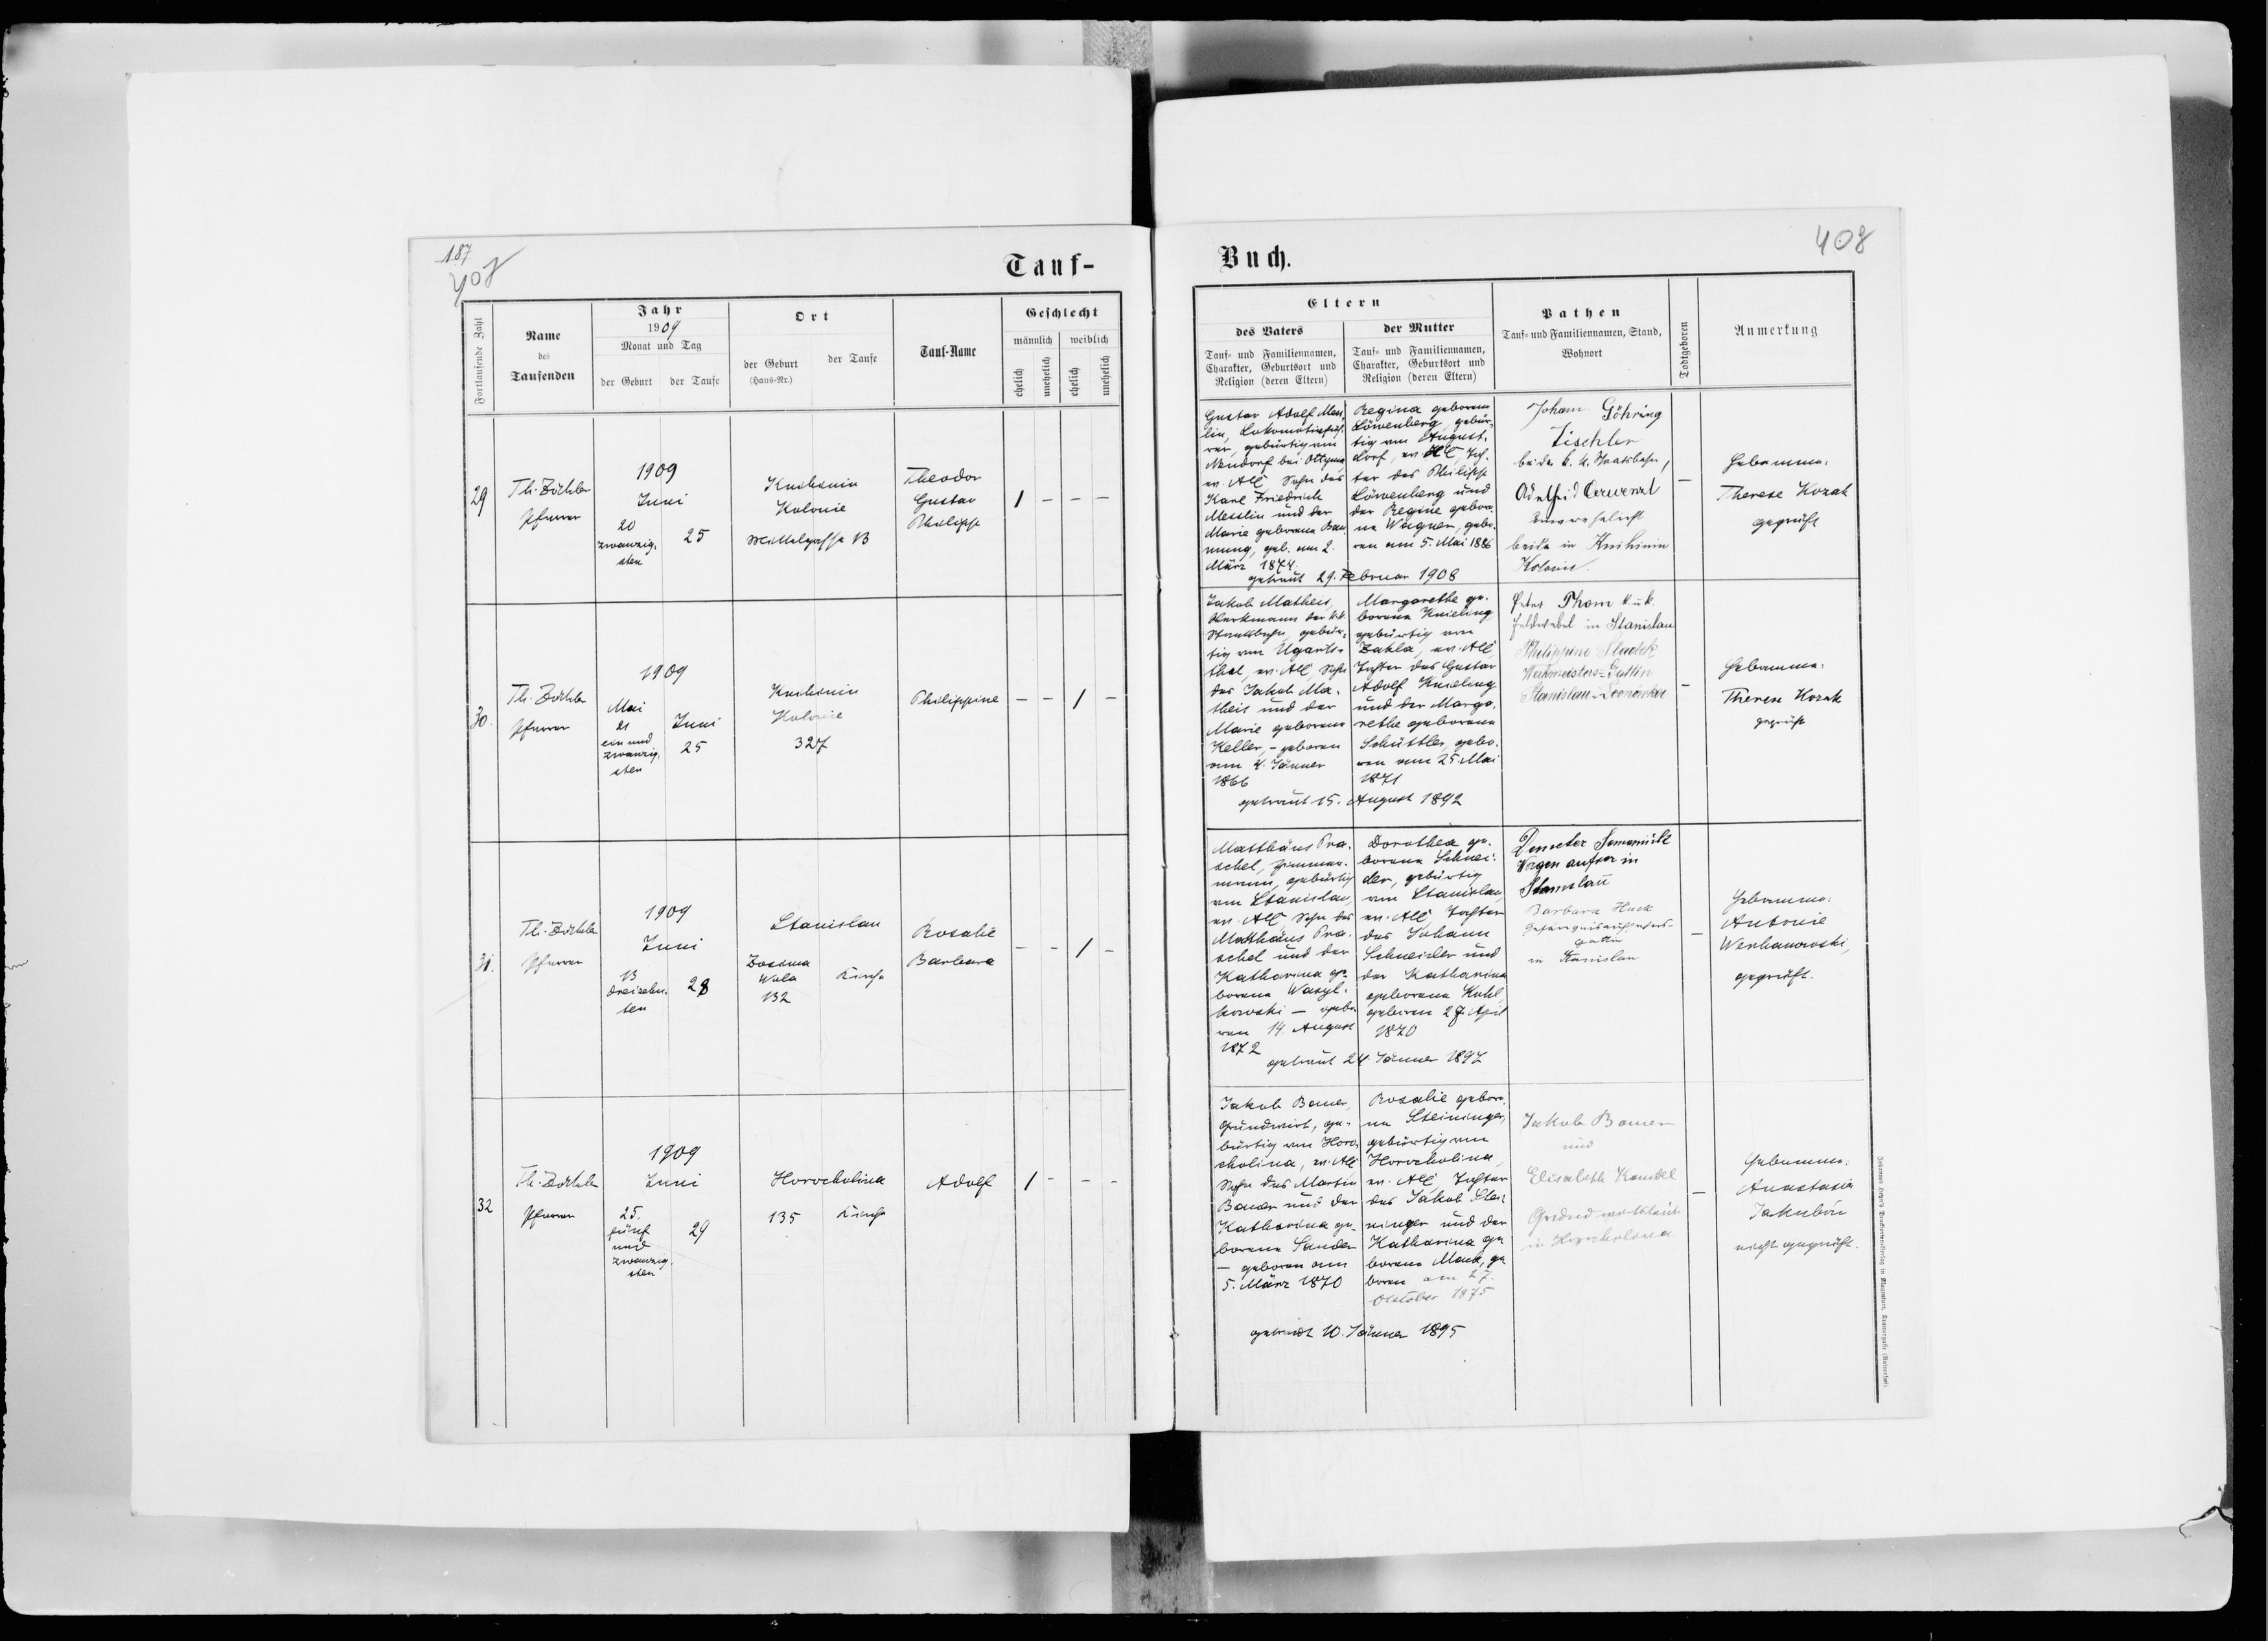 187
407
Tauf-
Fortlaufende Zahl
Name
des
Taufenden
Jahr
1909
Monat und Tag
der Geburt
der Taufe
Ort
der Geburt
(Haus-Nr.)
der Taufe
Tauf-Name
Geschlecht
männlich
weiblich
ehelich
unehelich
ehelich
unehelich
29
Th. Zöckler
Pfarrer
1909
Juni
20
zwanzig-
sten
25
Knihinin
Kolonie
Mittelgasse 13
Theodor
Gustav
Philipp
1 - - -
30.
Th. Zöckler
Pfarrer
1909
Mai
21
ein und
zwanzig-
sten
Juni
25
Knihinin
Kolonie
327
Philippine
- - 1 -
31.
Th. Zöckler
Pfarrer
1909
Juni
13
dreizehn-
ten
28
Stanislau
Zosina
Wola
132
Kirche
Rosalie
Barbara
- - 1 -
32
Th. Zöckler
Pfarrer
1909
Juni
25.
fünf
und
zwanzig-
sten
29
Horocholina
135
Kirche
Adolf
1 - - -
Buch.
408
Eltern
des Vaters
Tauf- und Familiennamen,
Charakter, Geburtsort und
Religion (deren Eltern)
der Mutter
Tauf- und Familiennamen,
Charakter, Geburtsort und
Religion (deren Eltern)
Pathen
Tauf- und Familiennamen, Stand,
Wohnort
Todtgeboren
Anmerkung
Gustav Adolf Mess-
lin, Lokomotivfüh-
rer, gebürtig von
Neudorf bei
ev. AC, Sohn des
Karl Friedrich
Messlin und der
Marie geborene Bau-
mung, geb. am 2.
März 1874.
Regina geborene
Löwenberg, gebür-
tig von August-
dorf, ev. HC, Toch-
ter des Philipp
Löwenberg und
der Regine gebore-
ne Wagner, gebo-
ren am 5. Mai 1886
getraut 29. Februar 1908
Johann Göhring
Tischler
bei der k. k. Staatsbahn,
Adelheid
unverehelicht
beide in Knihinin
Kolonie.
-
Hebamme:
Therese Kozak
geprüft
Jakob Matheis,
Werkmann der k.k.
Staatsbahn, gebür-
tig von Ugarts-
thal, ev. AC, Sohn
des Jakob Ma-
theis und der
Marie geborene
Keller, - geboren
am 4. Jänner
1866
Margarethe ge-
borene Knieling
gebürtig von
Zakla, ev. AC,
Tochter des Gustav
Adolf Knieling
und der Marga-
rethe geborene
Schüttler, gebo-
ren am 25. Mai
1871
getraut 15. August 1892
Peter Thom k. u. k.
Feldwebel in Stanislau
Philippine
Werkmeisters-Gattin
Stanislau-
-
Hebamme:
Therese Kozak
geprüft
Matthäus Pra-
schel, Zimmer-
mann, gebürtig
von Stanislau,
ev. AC, Sohn des
Matthäus Pra-
schel und der
Katharina ge-
borene Wasyl-
kowski - gebo-
ren 14. August
1872
Dorothea ge-
borene Schnei-
der, gebürtig
von Stanislau,
ev. AC, Tochter
des Johann
Schneider und
der Katharina
geborene Kuhl,
geboren 27. April
1870
getraut 24. Jänner 1897
Demeter
Wagenaufseher in
Stanislau
Barbara Huck
Gefängnisaufsehers-
gattin
in Stanislau
-
Hebamme:
Antonie
Werhanowski,
geprüft.
Jakob Bauer,
Grundwirt, ge-
bürtig von Horo-
cholina, ev. AC
Sohn des Martin
Bauer und der
Katharina ge-
borene Sander
- geboren am
5. März 1870
Rosalie gebore-
ne Steininger,
gebürtig von
Horocholina,
ev. AC, Tochter
des Jakob Stei-
ninger und der
Katharina ge-
borene Mauk, ge-
boren am 27.
Oktober 1875
getraut 10. Jänner 1895
Jakob Bauer
und
Elisabeth Kandel
Grundwirtsleute
in Horocholina
-
Hebamme:
Anastasia
Jakubów
nicht geprüft.